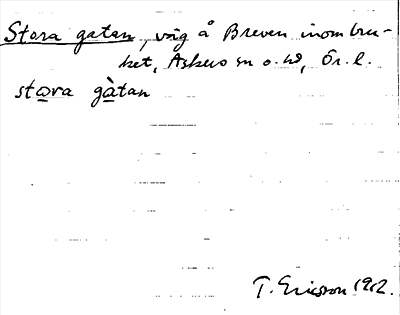 Stora gatan, väg å Breven inom bru-
ket, Askers sn o. hd, Ör. l.
stora gàtan
T. Ericsson 1912.